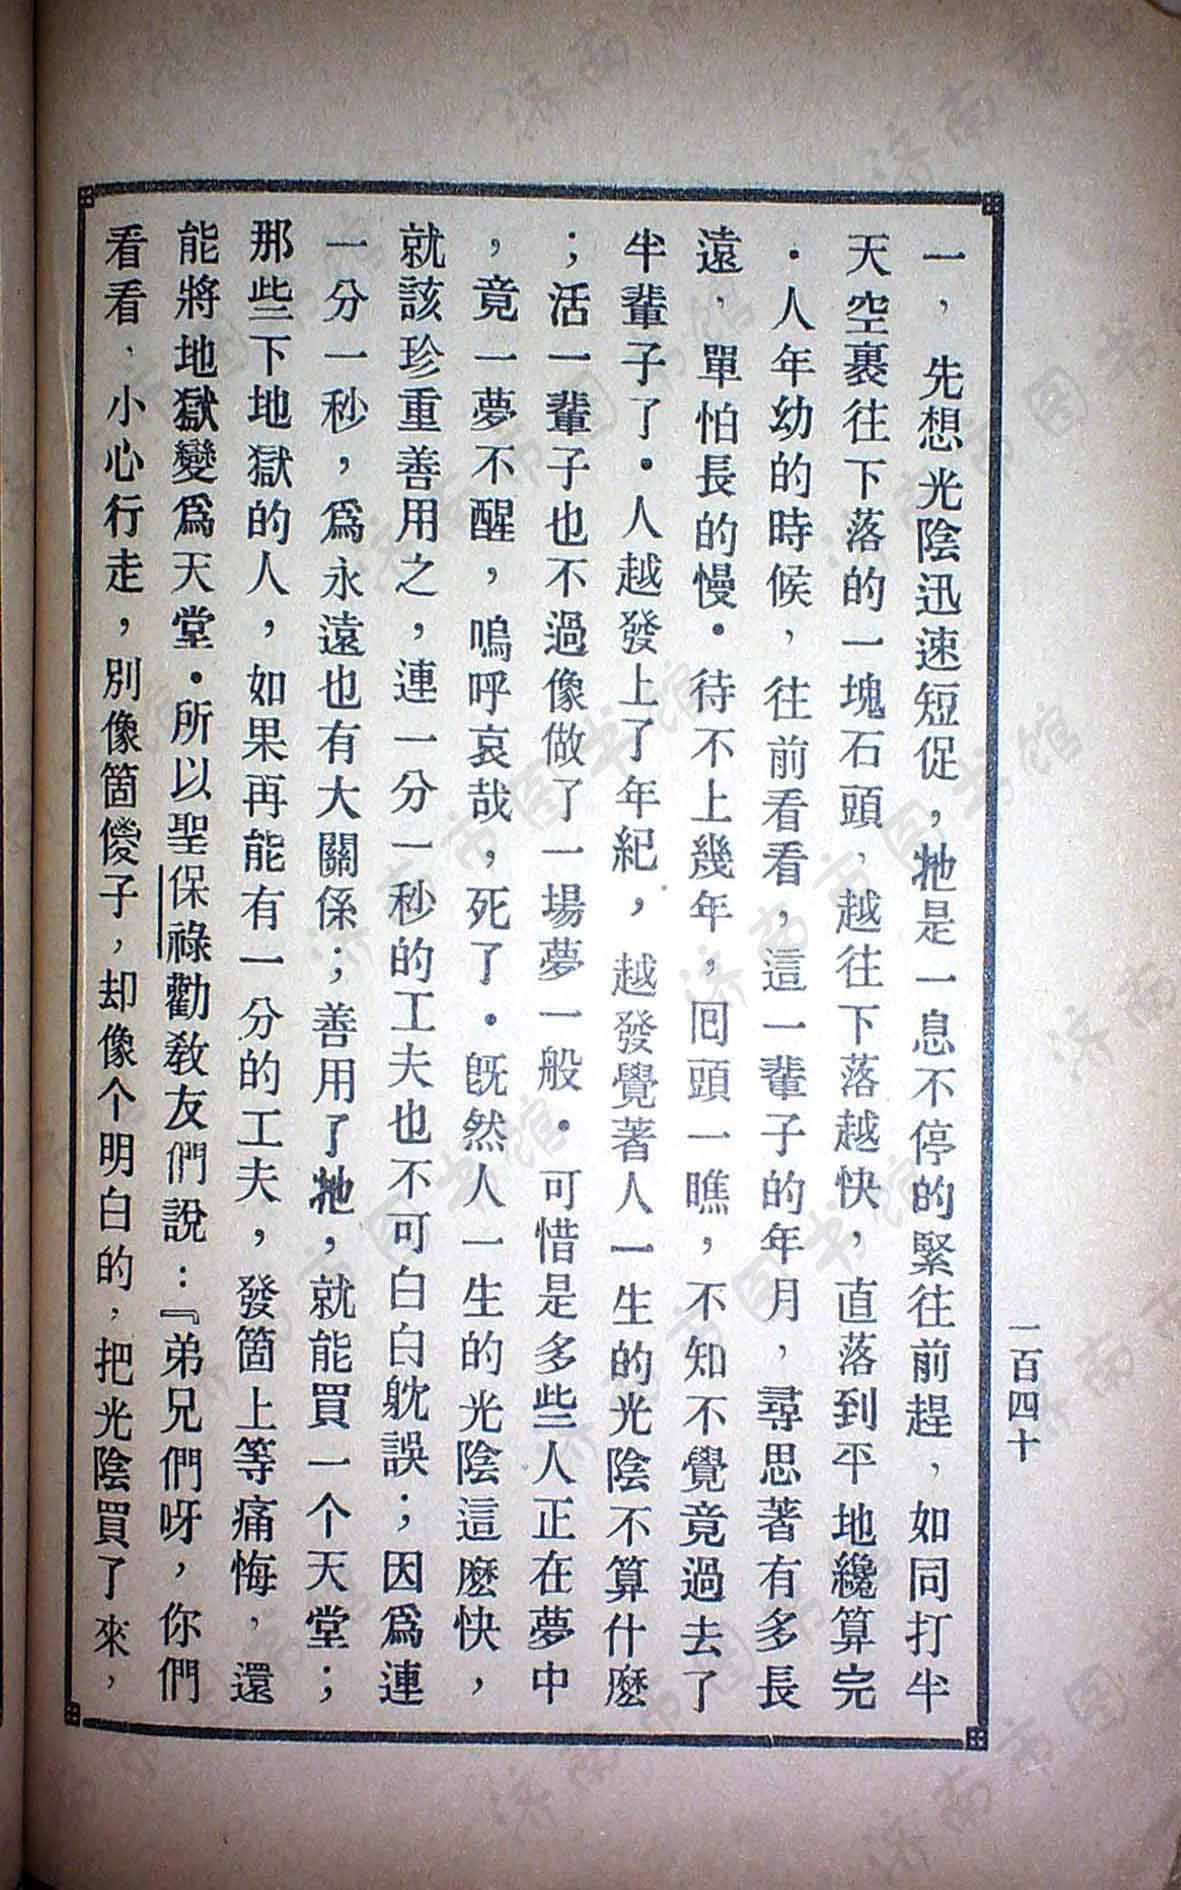 一百四十
一，先想光陰迅速短促，牠是一息不停的緊往前趕，如同打半
天空裏往下落的一塊石頭，越往下落越快，直落到平地纔算完
．人年幼的時候，往前看看，這一輩子的年月，尋思著有多長
遠，單怕長的慢．待不上幾年，囘頭一瞧，不知不覺竟過去了
半輩子了．人越發上了年紀，越發覺著人一生的光陰不算什麽
；活一輩子也不過像做了一場夢一般．可惜是多些人正在夢中
，竟一夢不醒，嗚呼哀哉，死了．旣然人一生的光陰這麽快，
就該珍重善用之，連一分一秒的工夫也不可白白躭誤；因爲連
一分一秒，爲永遠也有大關係；善用了牠，就能買一个天堂；
那些下地獄的人，如果再能有一分的工夫，發箇上等痛悔，還
能將地獄變爲天堂．所以聖保祿勸敎友們說：『弟兄們呀，你們
看看，小心行走，別像箇儍子，却像个明白的，把光陰買了來，
济南市图书馆